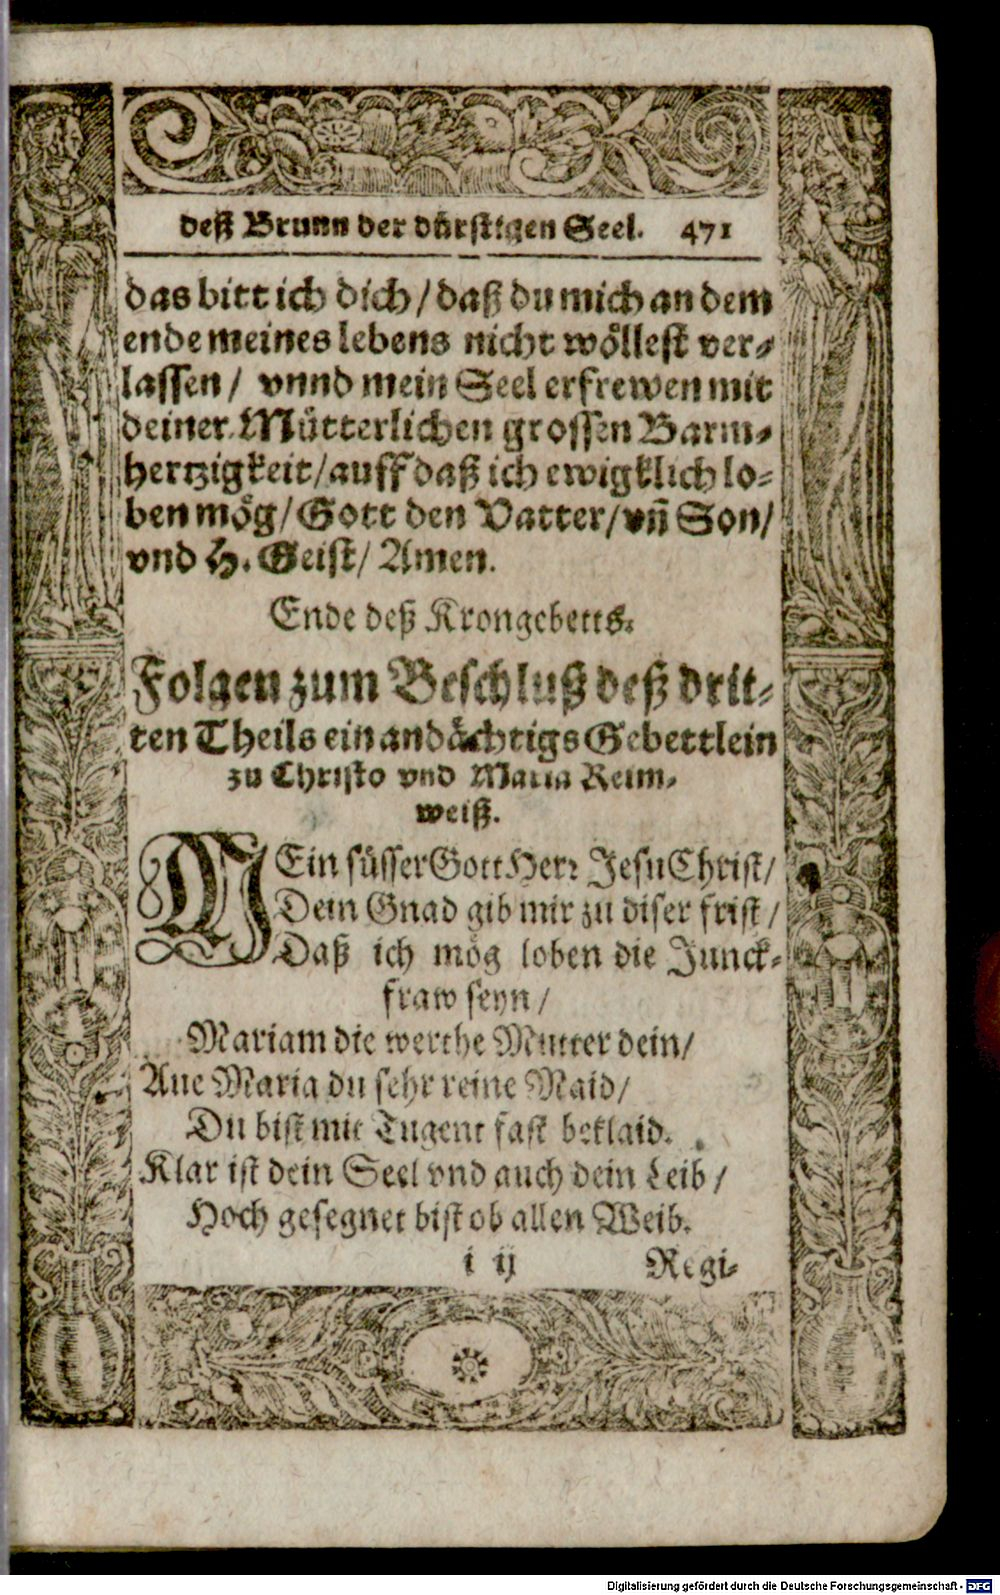 deß Brunn der dürstigen Seel. 471
das bitt ich dich / daß du mich an dem
ende meines lebens nicht wöllest ver-
lassen / vnnd mein Seel erfrewen mit
deiner Mütterlichen grossen Barm-
hertzigkeit / auff daß ich ewigklich lo-
ben mög / Gott den Vatter / vñ Son /
vnd H. Geist / Amen.
Ende deß Krongebetts.
Folgen zum Beschluß deß drit-
ten Theils ein andächtigs Gebettlein
zu Christo vnd Maria Reim-
weiß.
MEin süsser Gott Herr Jesu Christ /
Dein Gnad gib mir zu diser frist /
Daß ich mög loben die Junck-
fraw seyn /
Mariam die werthe Mutter dein /
Aue Maria du sehr reine Maid /
Du bist mit Tugent fast beklaid.
Klar ist dein Seel vnd auch dein Leib /
Hoch gesegnet bist ob allen Weib.
i ij Regi-
Digitalisierung gefördert durch die Deutsche Forschungsgemeinschaft - DFG